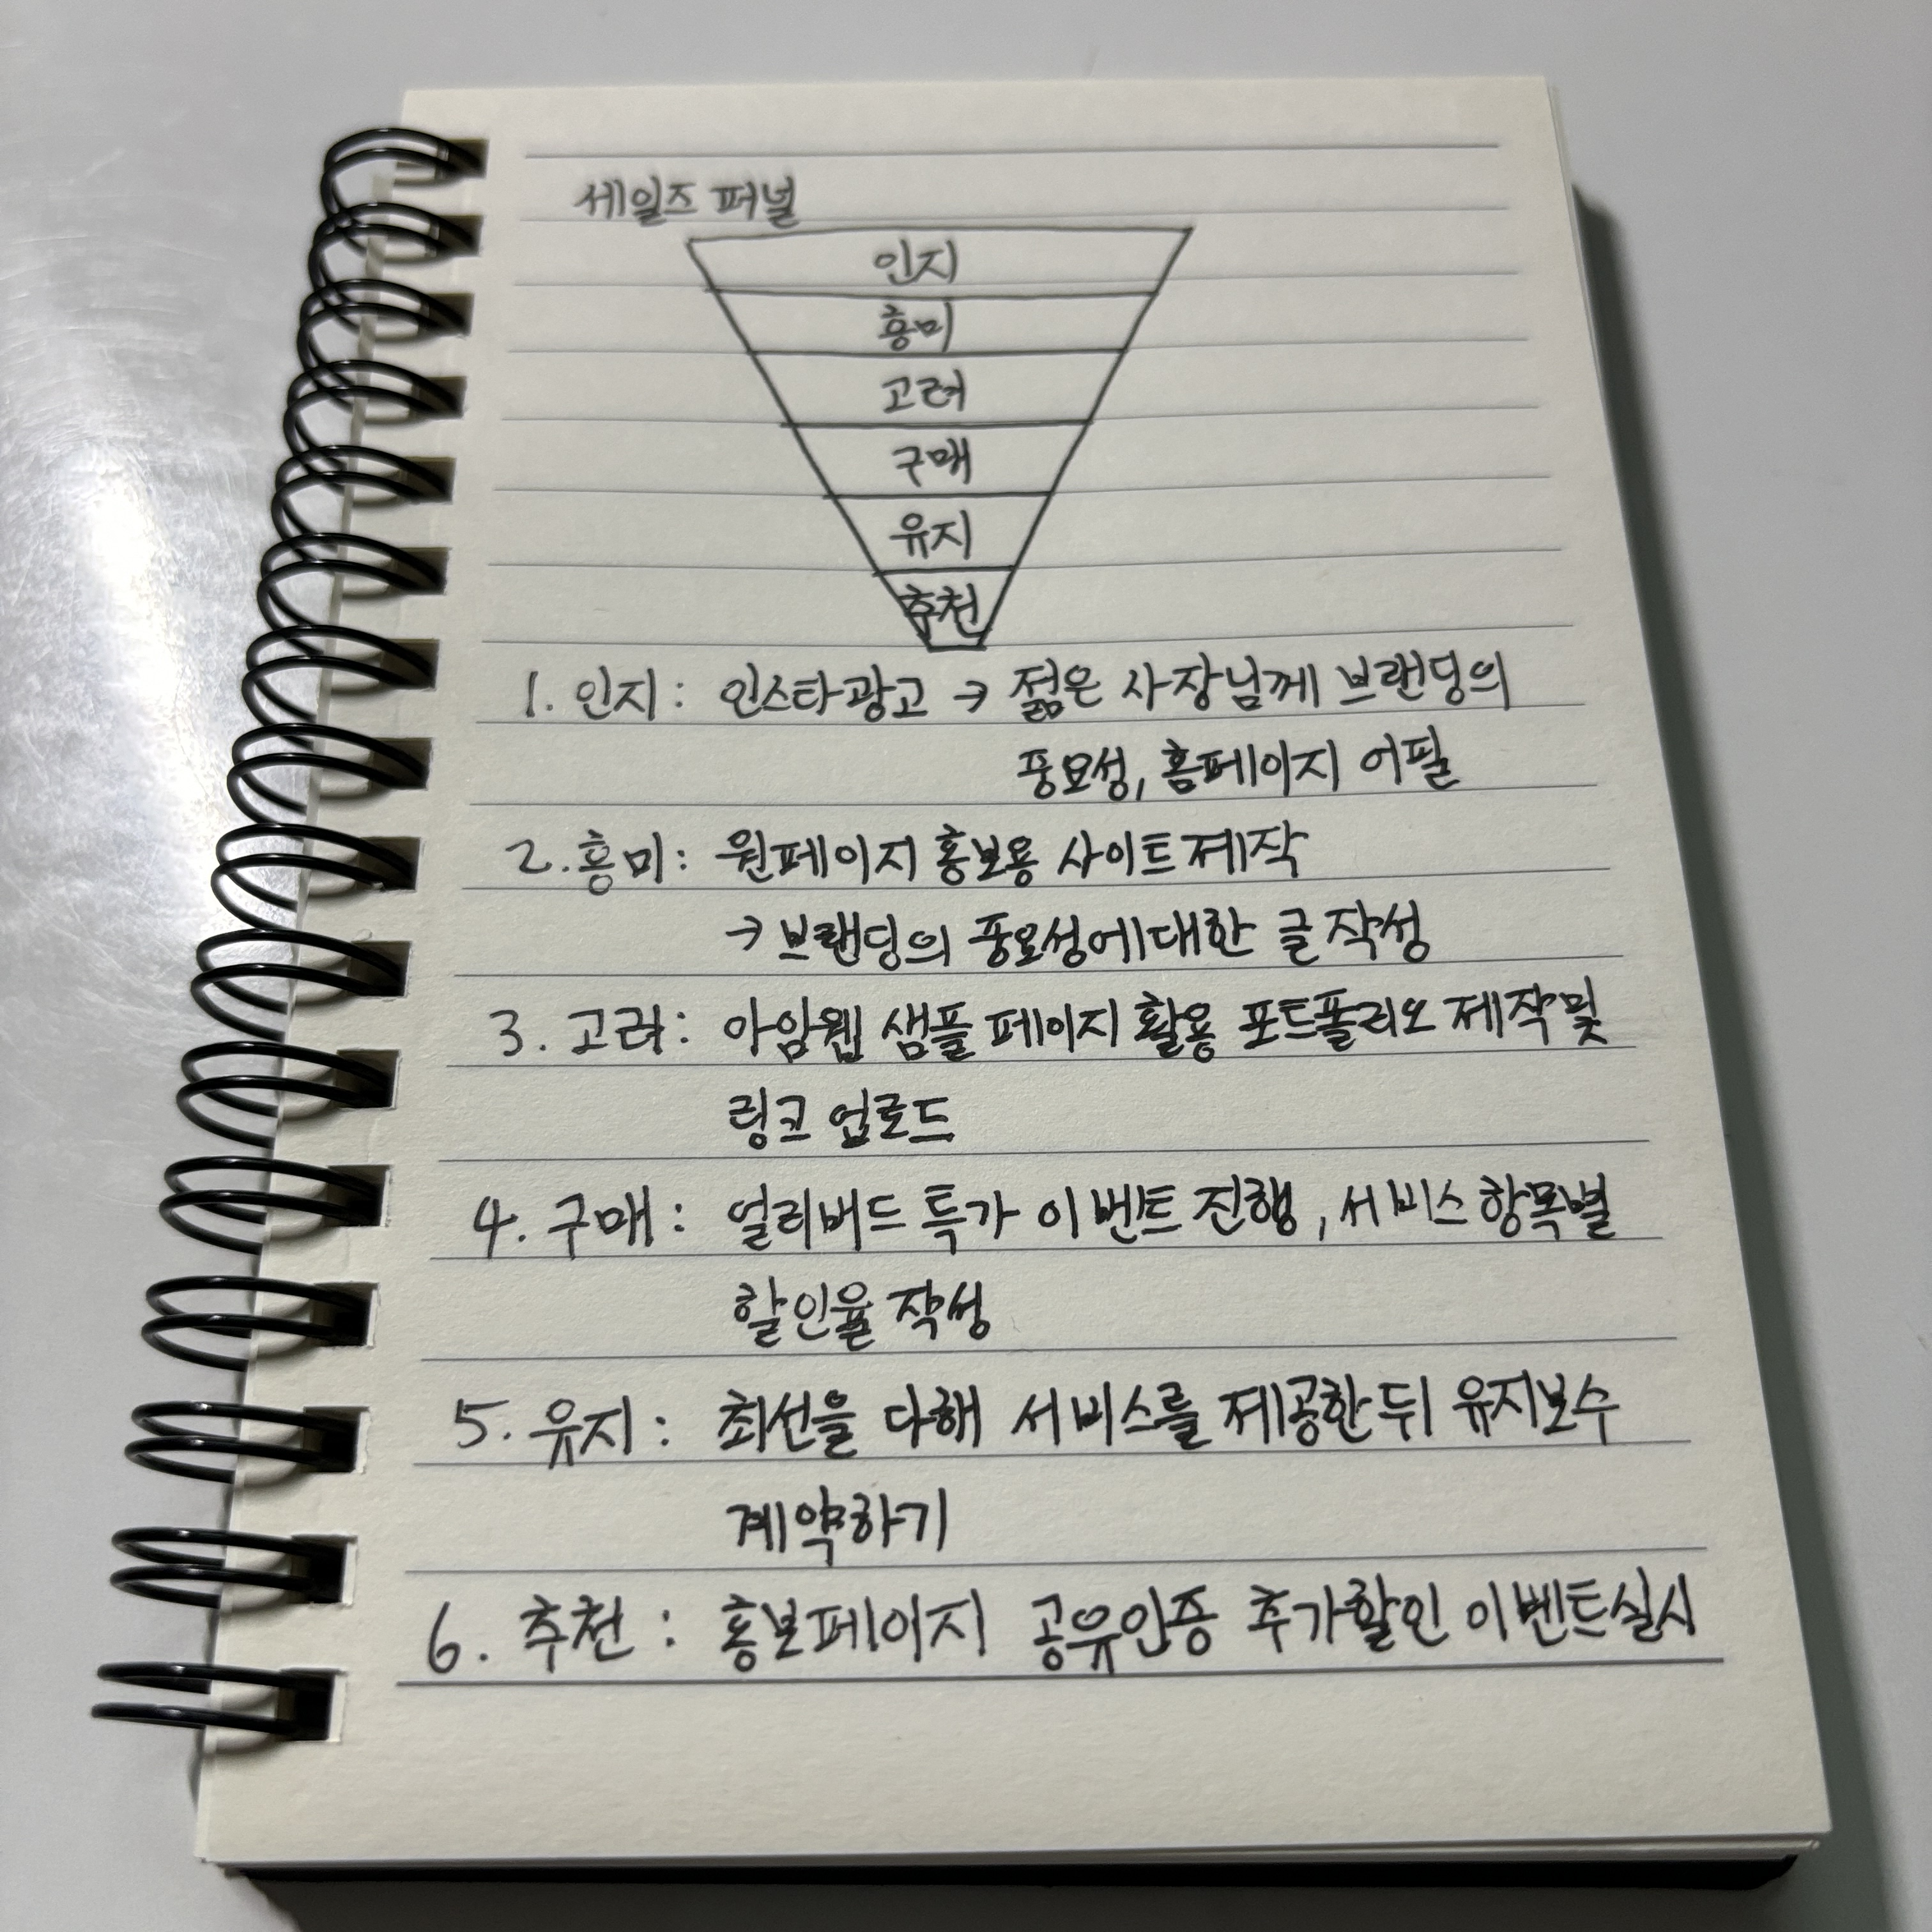 세일즈 퍼널
인지
흥미
고려
구매
유지
추천
1. 인지 : 인스타광고 → 젊은 사장님께 브랜딩의
풍요성, 홈페이지 어필
2. 흥미 : 원페이지 홍보용 사이트제작
→ 브랜딩의 풍요성에대한 글 작성
3. 고려 : 아임웹 샘플 페이지 활용 포트폴리오 제작및
링크 업로드
4. 구매 : 얼리버드 특가 이벤트 진행, 서비스 항목별
할인율 작성
5. 유지 : 최선을 다해 서비스를 제공한 뒤 유지보수
계약하기
6. 추천 : 홍보페이지 공유인증 추가할인 이벤트실시